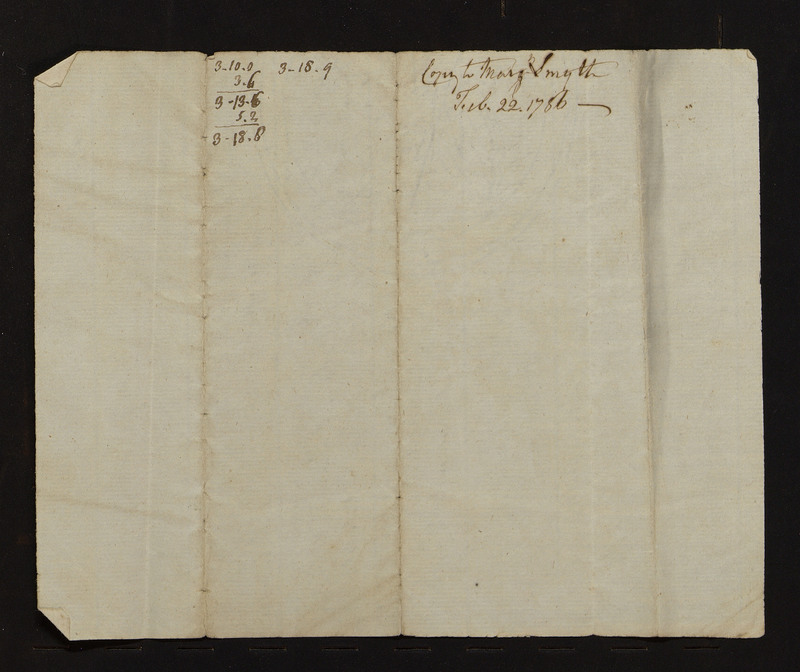 3-10.0 3-18.9
3.6
3-13.6
5.2
3-18.8
Copy to Marg.t Smyth
Feb. 22. 1786 —